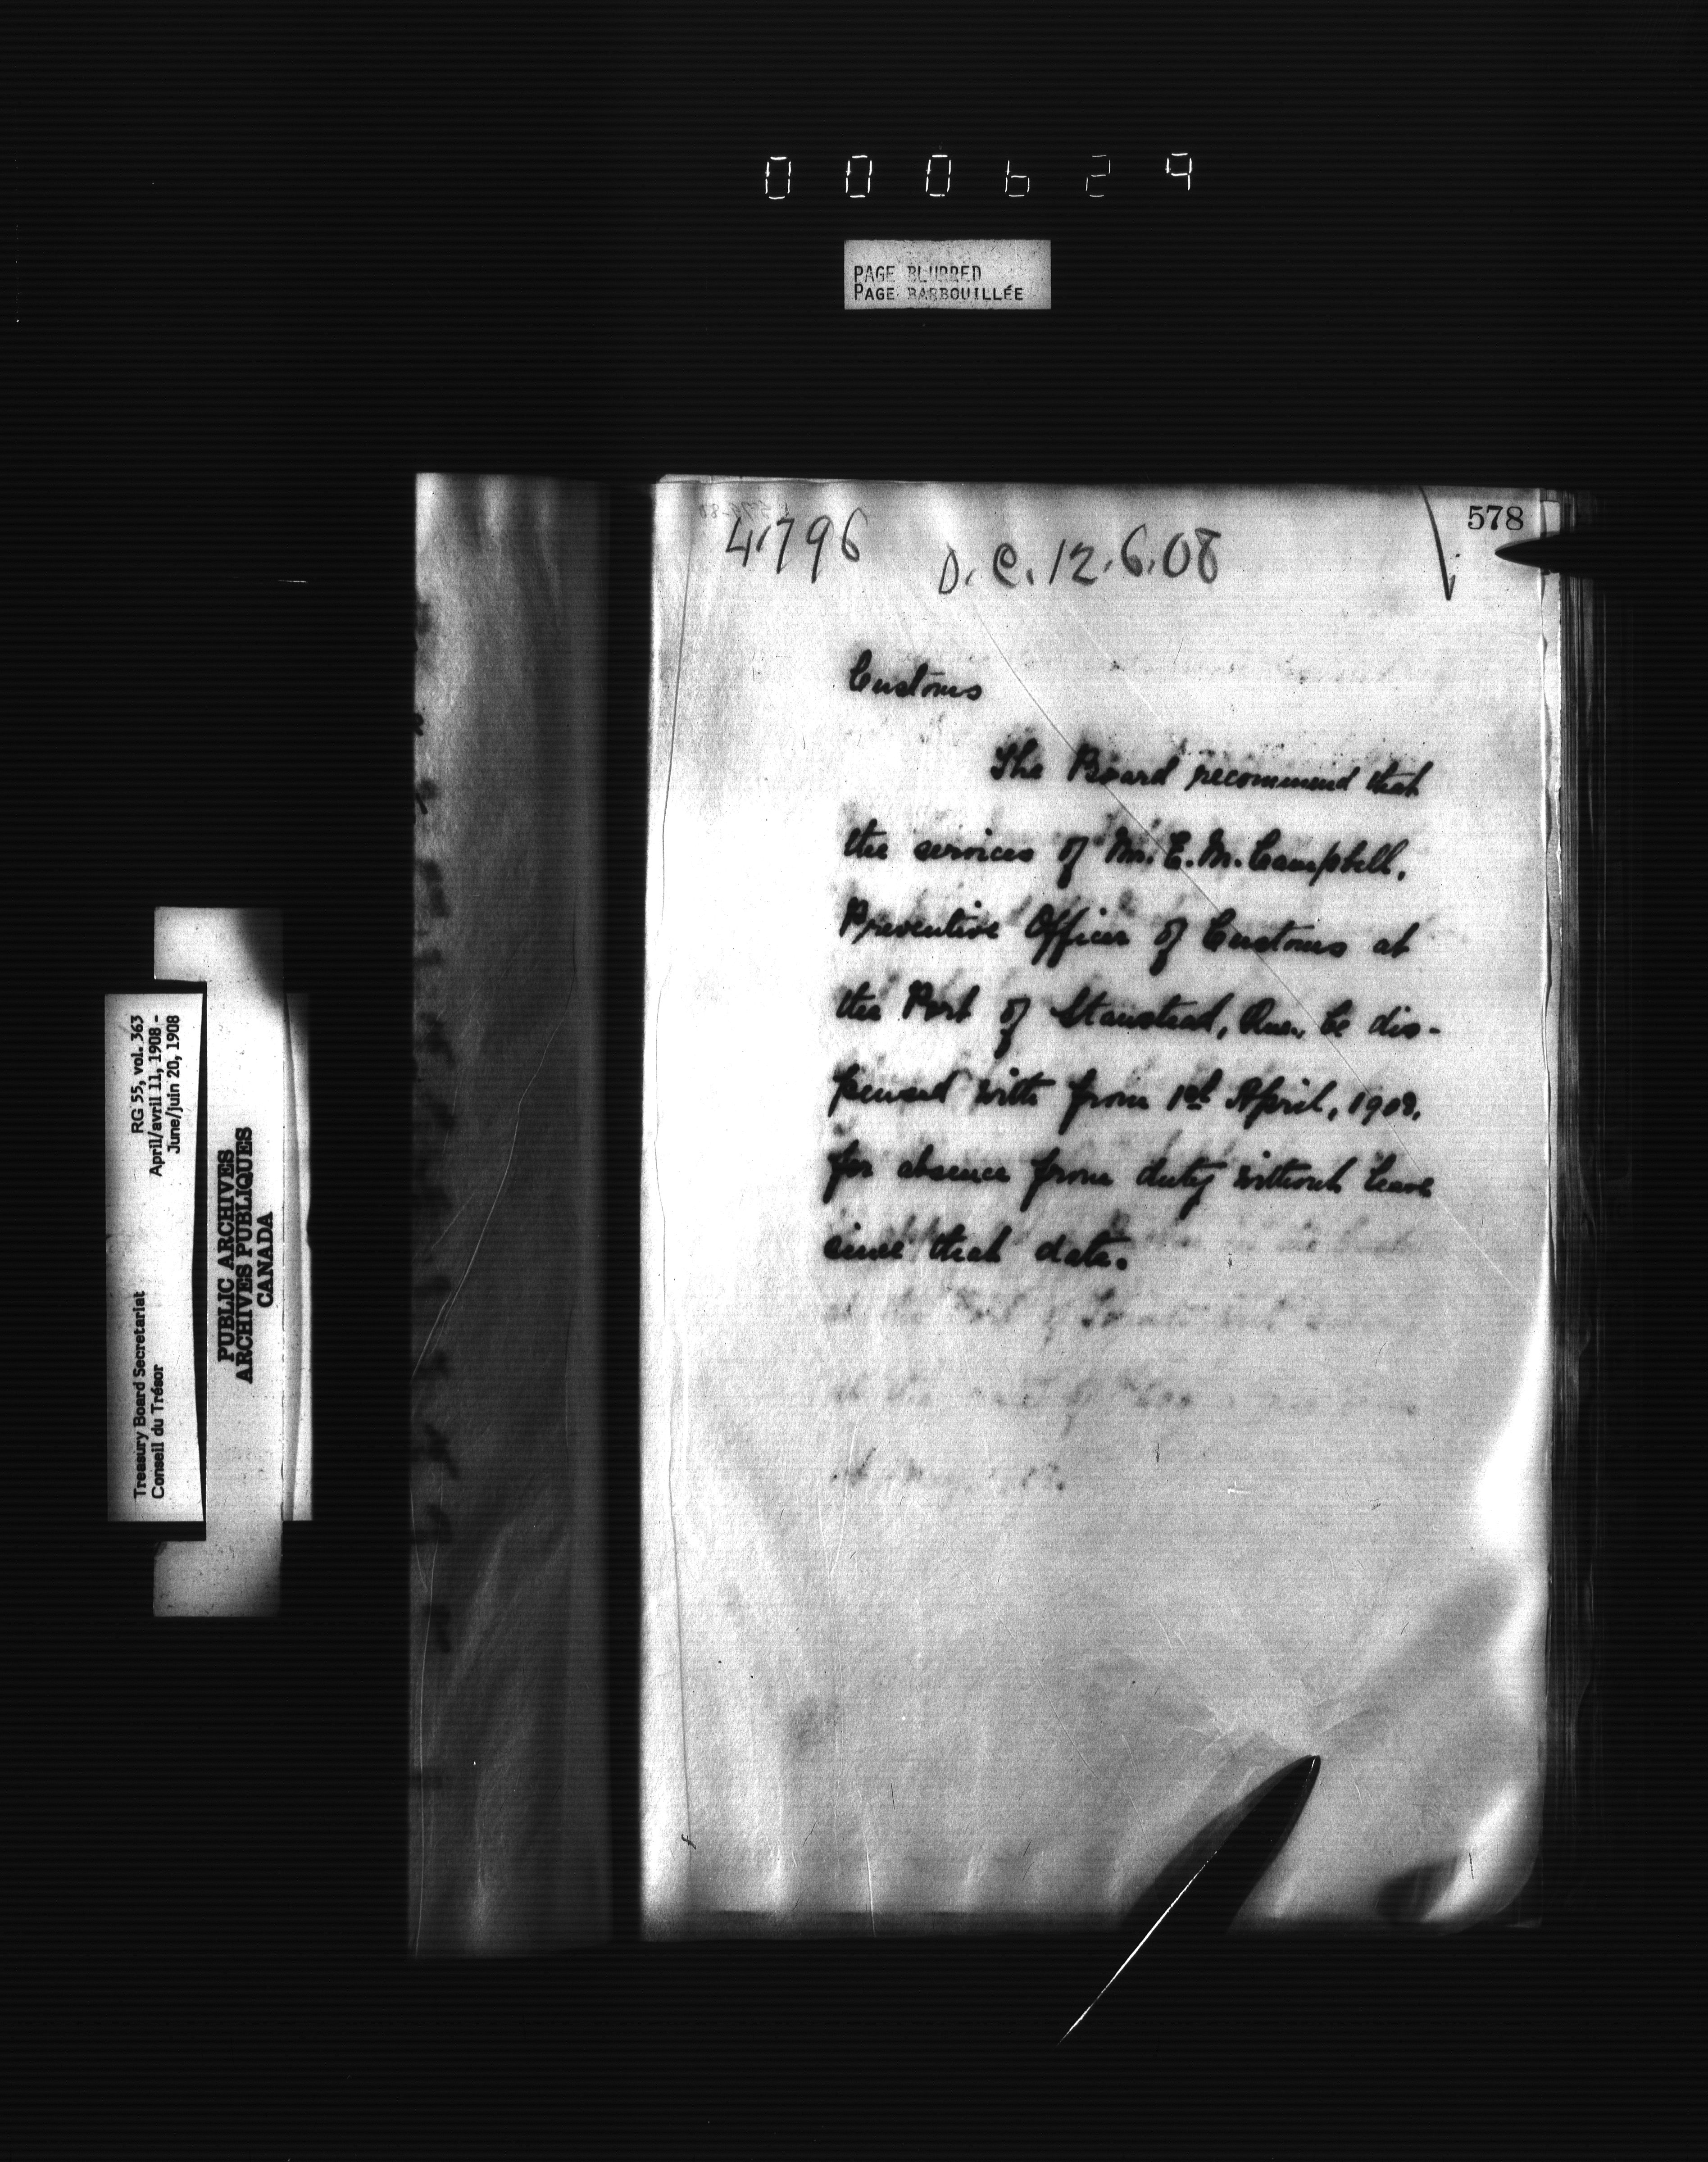 000629
PAGE BLURRED
PAGE BARBOUILLÉE
578
4796
O.C. 12.6.08
Customs
The Board recommend that
the services of Mr. E. M. Campbell,
Preventive Officer of Customs at
the Port of Stanstead, Que., be dis-
pensed with from 1st April, 1908,
for absence from duty without leave
since that date.
RG 55, vol. 363
April/avril 11, 1908 -
June/juin 20, 1908
Treasury Board Secretariat
Conseil du Trésor
PUBLIC ARCHIVES
ARCHIVES PUBLIQUES
CANADA